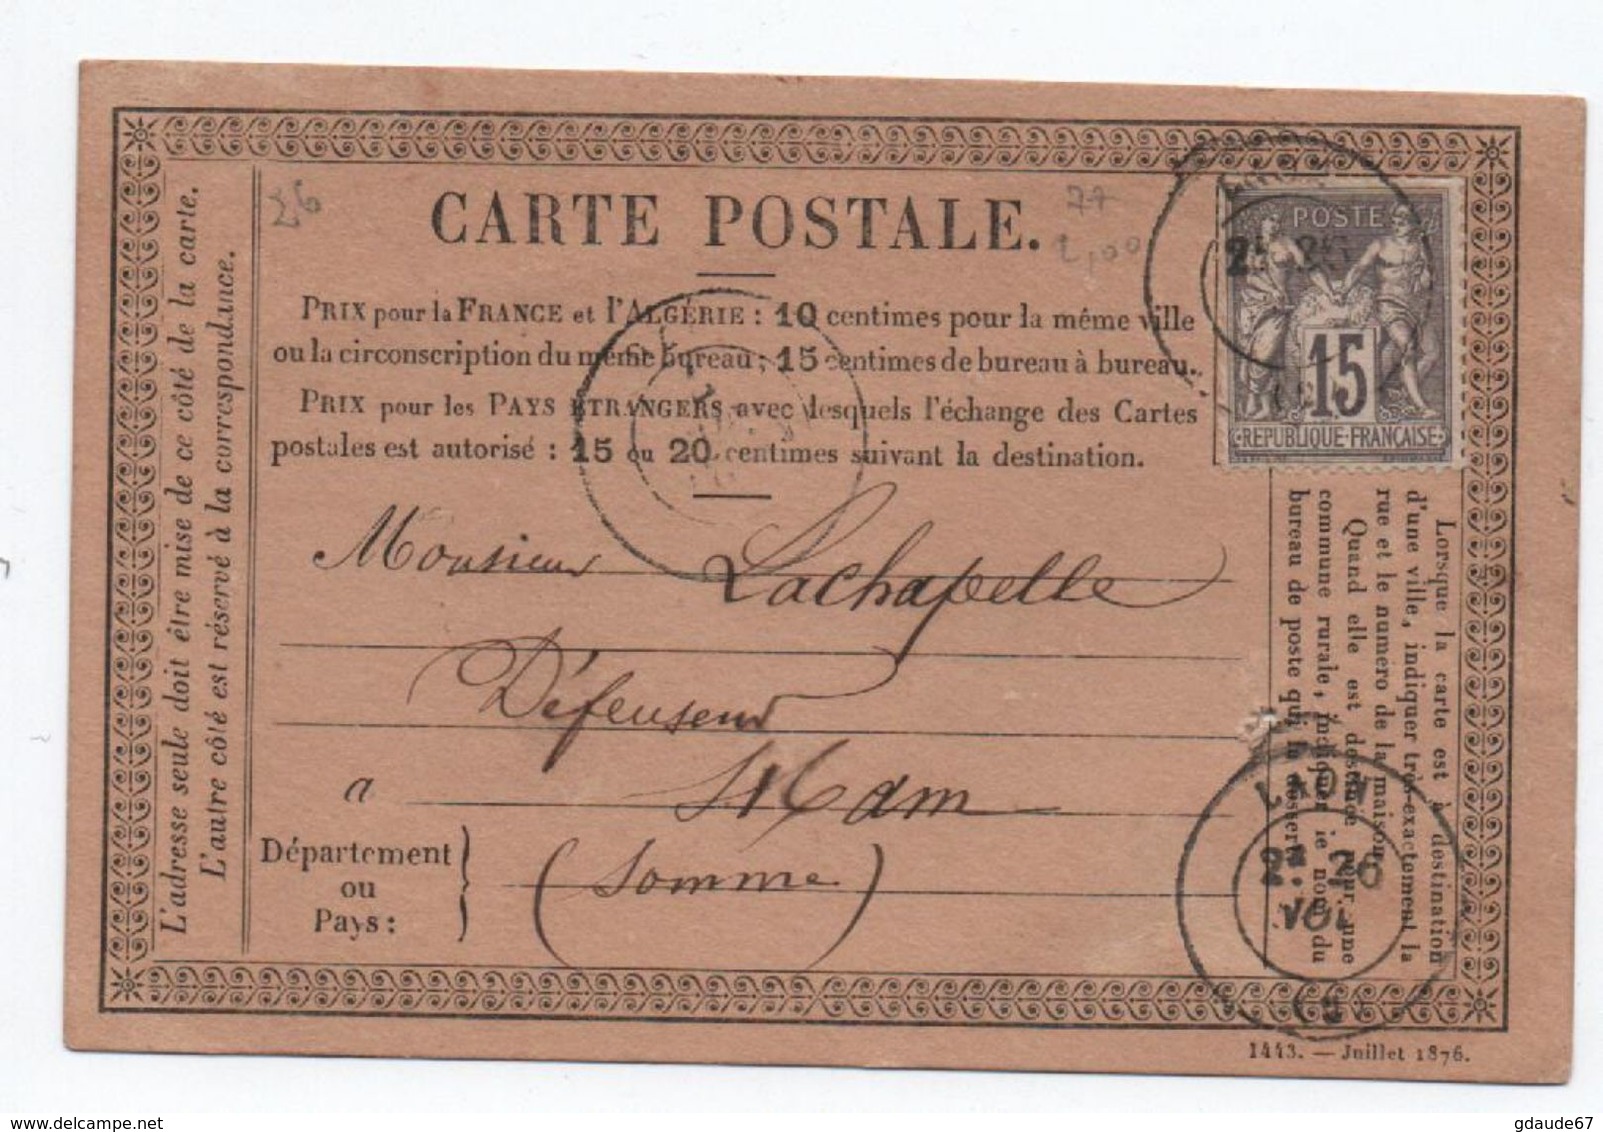 CARTE POSTALE.
26
77
2,00
PRIX pour la FRANCE et l'ALGÉRIE : 10 centimes pour la même ville
ou la circonscription du même bureau ; 15 centimes de bureau à bureau.
PRIX pour les PAYS ÉTRANGERS avec lesquels l'échange des Cartes
postales est autorisé : 15 ou 20 centimes suivant la destination.
POSTE
15
REPUBLIQUE·FRANÇAISE
L'adresse seule doit être mise de ce côté de la carte.
L'autre côté est réservé à la correspondance.
Monsieur Lachapelle
Défenseur
a Ham
Département
ou
Pays :
(Somme)
Lorsque la carte est à destination
d'une ville, indiquer très-exactement la
rue et le numéro de la maison.
Quand elle est destinée pour une
commune rurale, indiquer le nom du
bureau de poste qui la dessert.
LAON
2E 26
1443. — Juillet 1876.
gdaude67